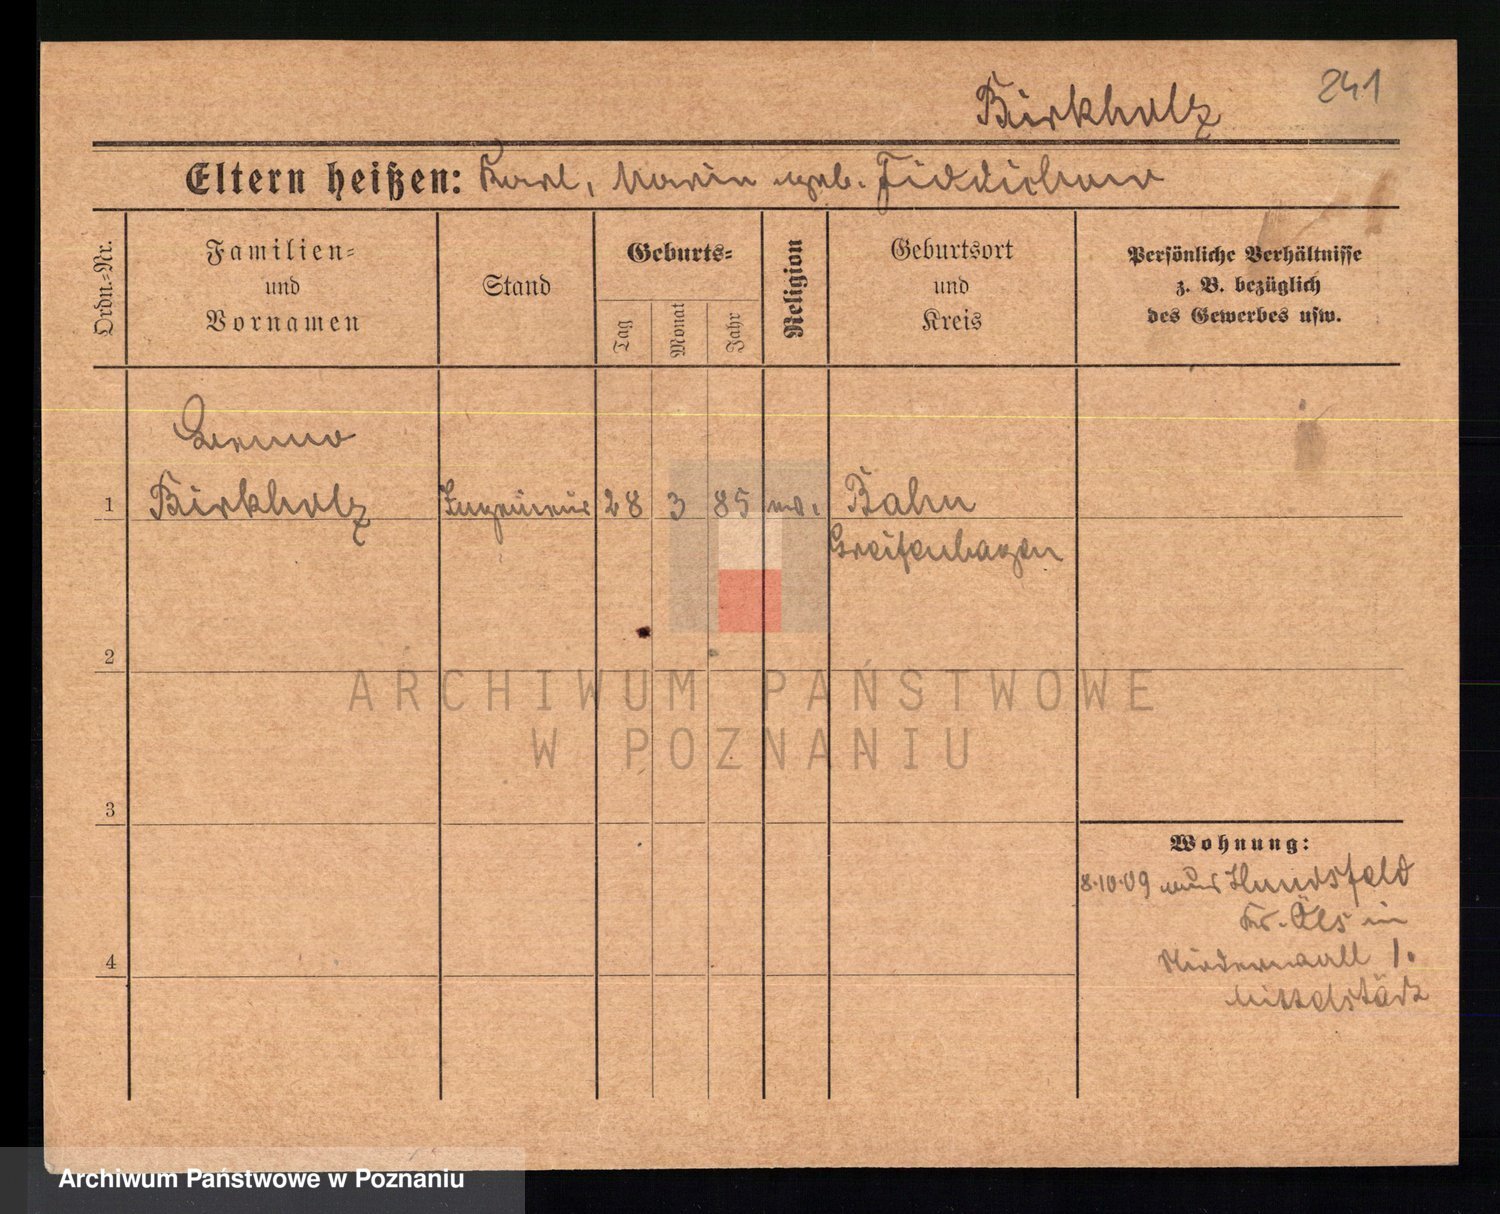 Birkholz
241
Eltern heißen: Karl, Marie geb. Fiddichow
Ordn.=Nr.
Familien=
und
Vornamen
Stand
Geburts=
Tag
Monat
Jahr
Religion
Geburtsort
und
Kreis
Persönliche Verhältnisse
z. B. bezüglich
des Gewerbes usw.
1
Birkholz
Ingenieur
28
3
85
ev.
Bahn
Greifenhagen
2
3
4
Wohnung:
8.10.09 Hundsfeld
Kr. Öls in
Niederwall 1.
Mittelstädt
ARCHIWUM PAŃSTWOWE
W POZNANIU
Archiwum Państwowe w Poznaniu